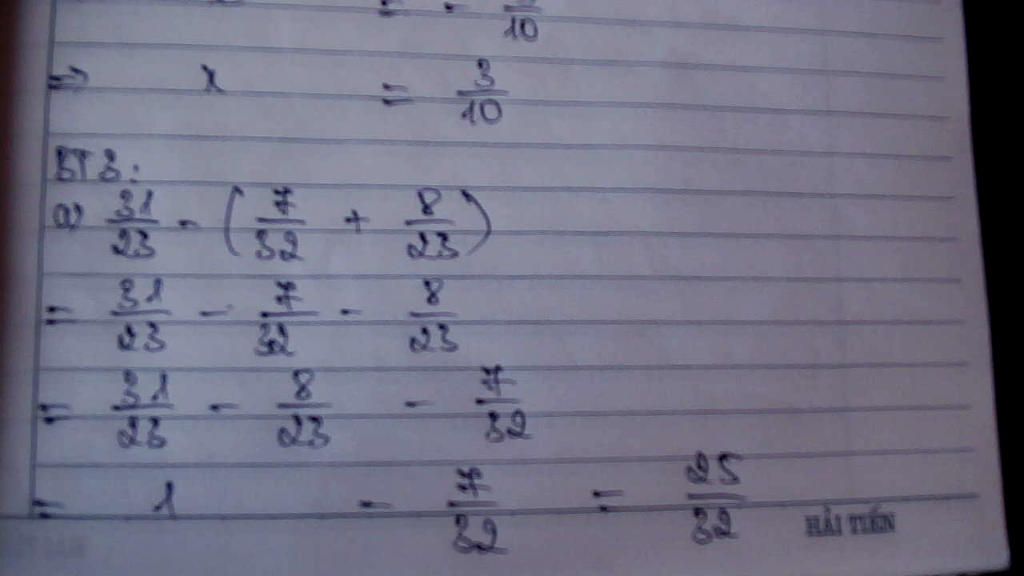 = - /10
=> x = 3/10
BT3:
a) 31/23 - (7/32 + 8/23)
= 31/23 - 7/32 - 8/23
= 31/23 - 8/23 - 7/32
= 1 - 7/32 = 25/32
HẢI TIẾN